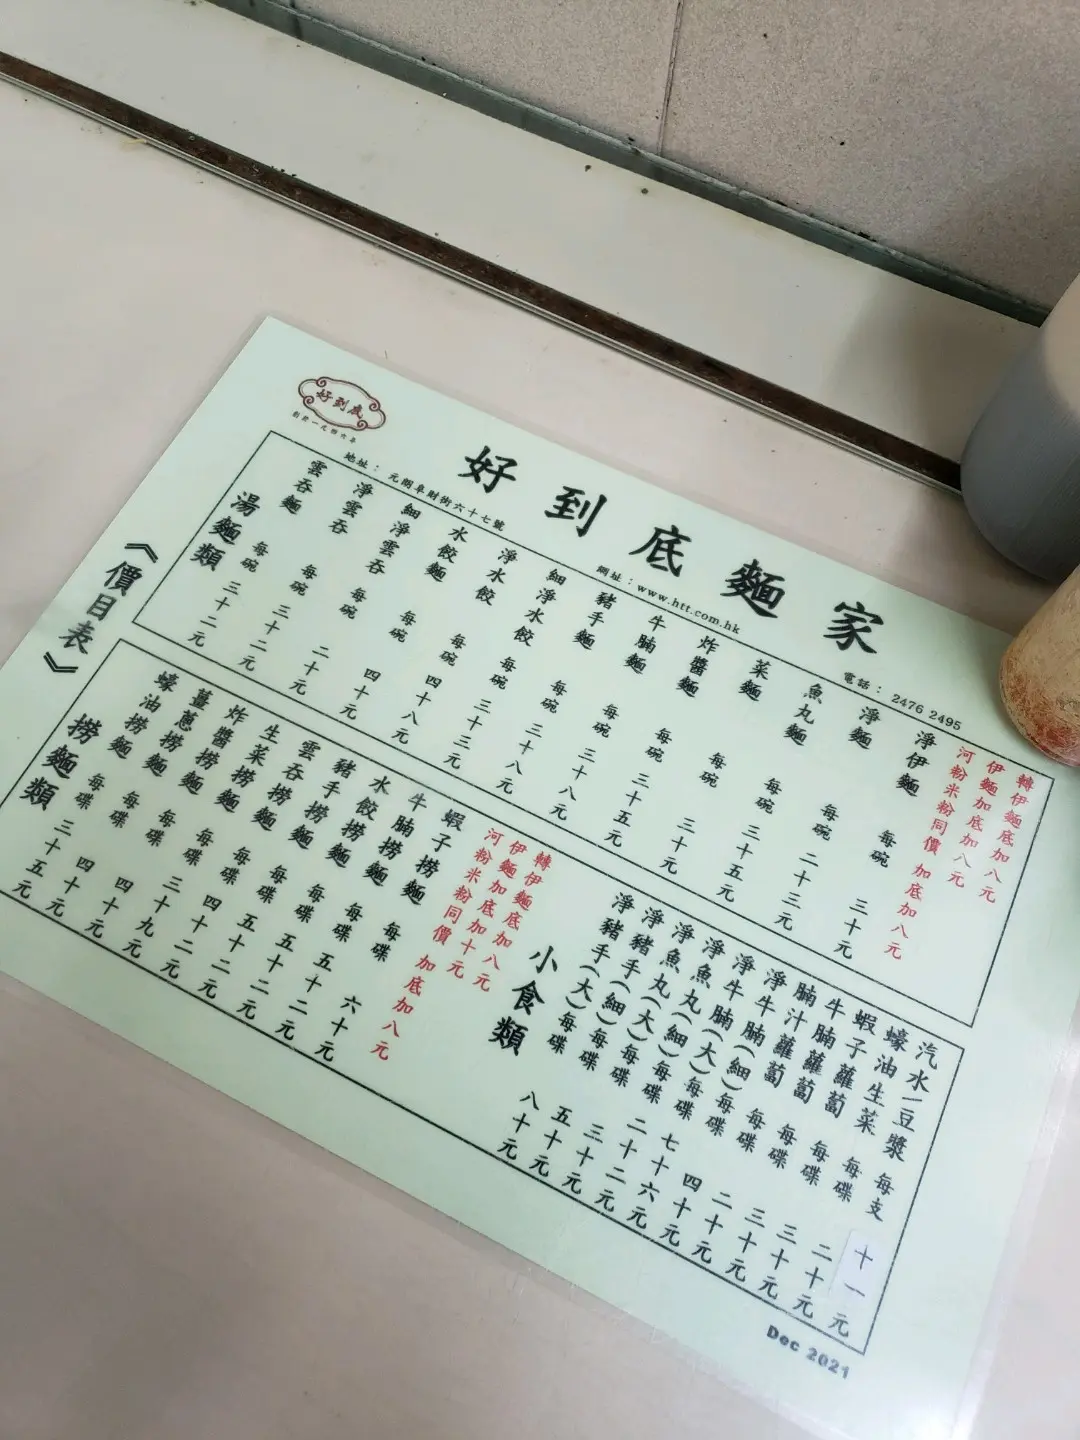 好到底
創於一九四六年
好到底麵家
地址：元朗阜財街六十七號
網址：www.htt.com.hk
電話：2476 2495
《價目表》
湯麵類
雲吞麵 每碗 三十二元
淨雲吞 每碗 三十二元
細淨雲吞 每碗 二十元
水餃麵 每碗 四十元
淨水餃 每碗 四十八元
細淨水餃 每碗 三十三元
豬手麵 每碗 三十八元
牛腩麵 每碗 三十八元
炸醬麵 每碗 三十五元
菜麵 每碗 三十元
魚丸麵 每碗 三十五元
淨麵 每碗 二十三元
淨伊麵 每碗 三十元
河粉米粉同價 加底加八元
伊麵加底加八元
轉伊麵底加八元
撈麵類
蠔油撈麵 每碟 三十五元
薑蔥撈麵 每碟 四十元
炸醬撈麵 每碟 四十元
生菜撈麵 每碟 三十九元
雲吞撈麵 每碟 四十二元
豬手撈麵 每碟 五十二元
水餃撈麵 每碟 五十二元
牛腩撈麵 每碟 五十二元
蝦子撈麵 每碟 六十元
河粉米粉同價 加底加八元
伊麵加底加十元
轉伊麵底加八元
小食類
淨豬手(大)每碟 八十元
淨豬手(細)每碟 五十元
淨魚丸(大)每碟 三十元
淨魚丸(細)每碟 二十二元
淨牛腩(大)每碟 七十六元
淨牛腩(細)每碟 四十元
腩汁蘿蔔 每碟 二十元
牛腩蘿蔔 每碟 三十元
蝦子蘿蔔 每碟 三十元
蠔油生菜 每碟 二十元
汽水/豆漿 每支 十一元
Dec 2021